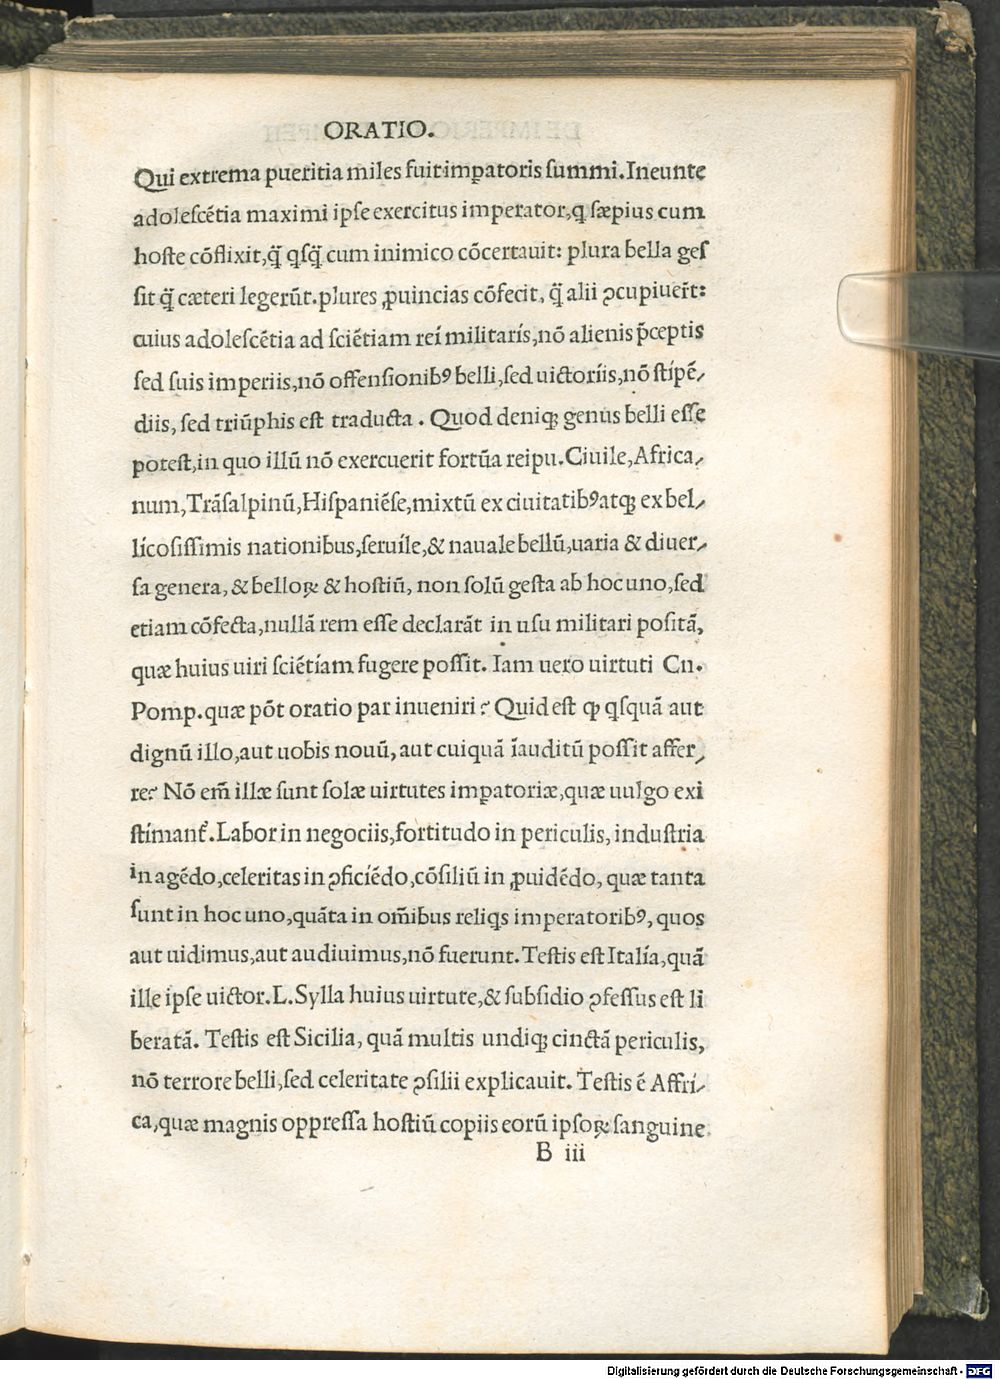 ORATIO.
Qui extrema pueritia miles fuit imꝑatoris summi. Ineunte
adolescētia maximi ipse exercitus imperator, q sæpius cum
hoste cōflixit, q̄ꝫ qsq̄ꝫ cum inimico cōcertauit: plura bella ges
sit q̄ꝫ cæteri legerūt. plures ꝓuincias cōfecit, q̄ꝫ alii ꝯcupiuer̄t:
cuius adolescētia ad sciētiam rei militaris, nō alienis p̄ceptis
sed suis imperiis, nō offensionibꝰ belli, sed uictoriis, nō stipē/
diis, sed triūphis est traducta. Quod deniqꝫ genus belli esse
potest, in quo illū nō exercuerit fortūa reipu. Ciuile, Africa/
num, Trāsalpinū, Hispaniēse, mixtū ex ciuitatibꝰ atqꝫ ex bel/
licosissimis nationibus, seruile, & nauale bellū, uaria & diuer/
sa genera, & belloꝝ & hostiū, non solū gesta ab hoc uno, sed
etiam cōfecta, nullā rem esse declarāt in usu militari positā,
quæ huius uiri sciētiam fugere possit. Iam uero uirtuti Cn.
Pomp. quæ pōt oratio par inueniri? Quid est ꝙ qsquā aut
dignū illo, aut uobis nouū, aut cuiquā īauditū possit affer/
re? Nō em̄ illæ sunt solæ uirtutes imꝑatoriæ, quæ uulgo exi
stimant᷑. Labor in negociis, fortitudo in periculis, industria
in agēdo, celeritas in ꝯficiēdo, cōsiliū in ꝓuidēdo, quæ tanta
sunt in hoc uno, quāta in om̄ibus reliqs imperatoribꝰ, quos
aut uidimus, aut audiuimus, nō fuerunt. Testis est Italia, quā
ille ipse uictor. L. Sylla huius uirtute, & subsidio ꝯfessus est li
beratā. Testis est Sicilia, quā multis undiqꝫ cinctā periculis,
nō terrore belli, sed celeritate ꝯsilii explicauit. Testis ē Affri/
ca, quæ magnis oppressa hostiū copiis eorū ipsoꝝ sanguine
B iii
Digitalisierung gefördert durch die Deutsche Forschungsgemeinschaft - DFG